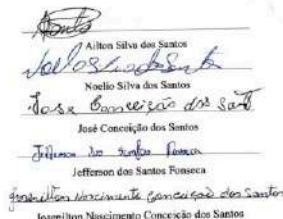 Ailton Silva dos Santos
Noelio Silva dos Santos
Jose Conceição dos Sant
José Conceição dos Santos
Jefferson dos Santos Fonseca
Jefferson dos Santos Fonseca
Josenilton Nascimento Conceição dos Santos
Josenilton Nascimento Conceição dos Santos